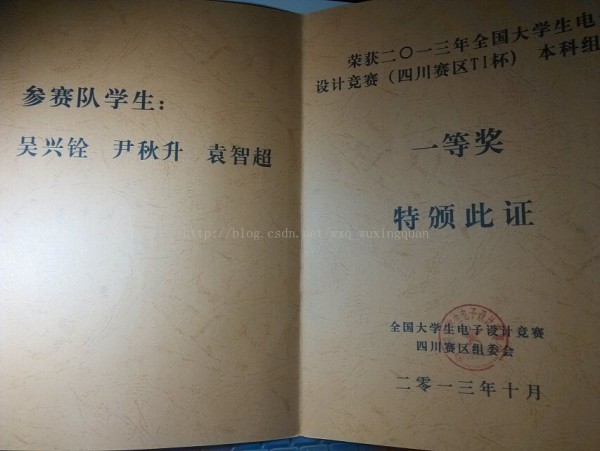 参赛队学生：
吴兴铨 尹秋升 袁智超
荣获二〇一三年全国大学生电
设计竞赛（四川赛区TI杯） 本科组
一等奖
特颁此证
http://blog.csdn.net/wxq_wuxingquan
全国大学生电子设计竞赛
四川赛区组委会
二零一三年十月